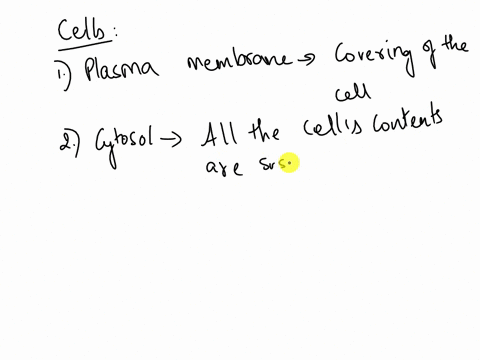 Cells:
1.) Plasma membrane → Covering of the
cell
2.) Cytosol → All the cell's contents
are sus